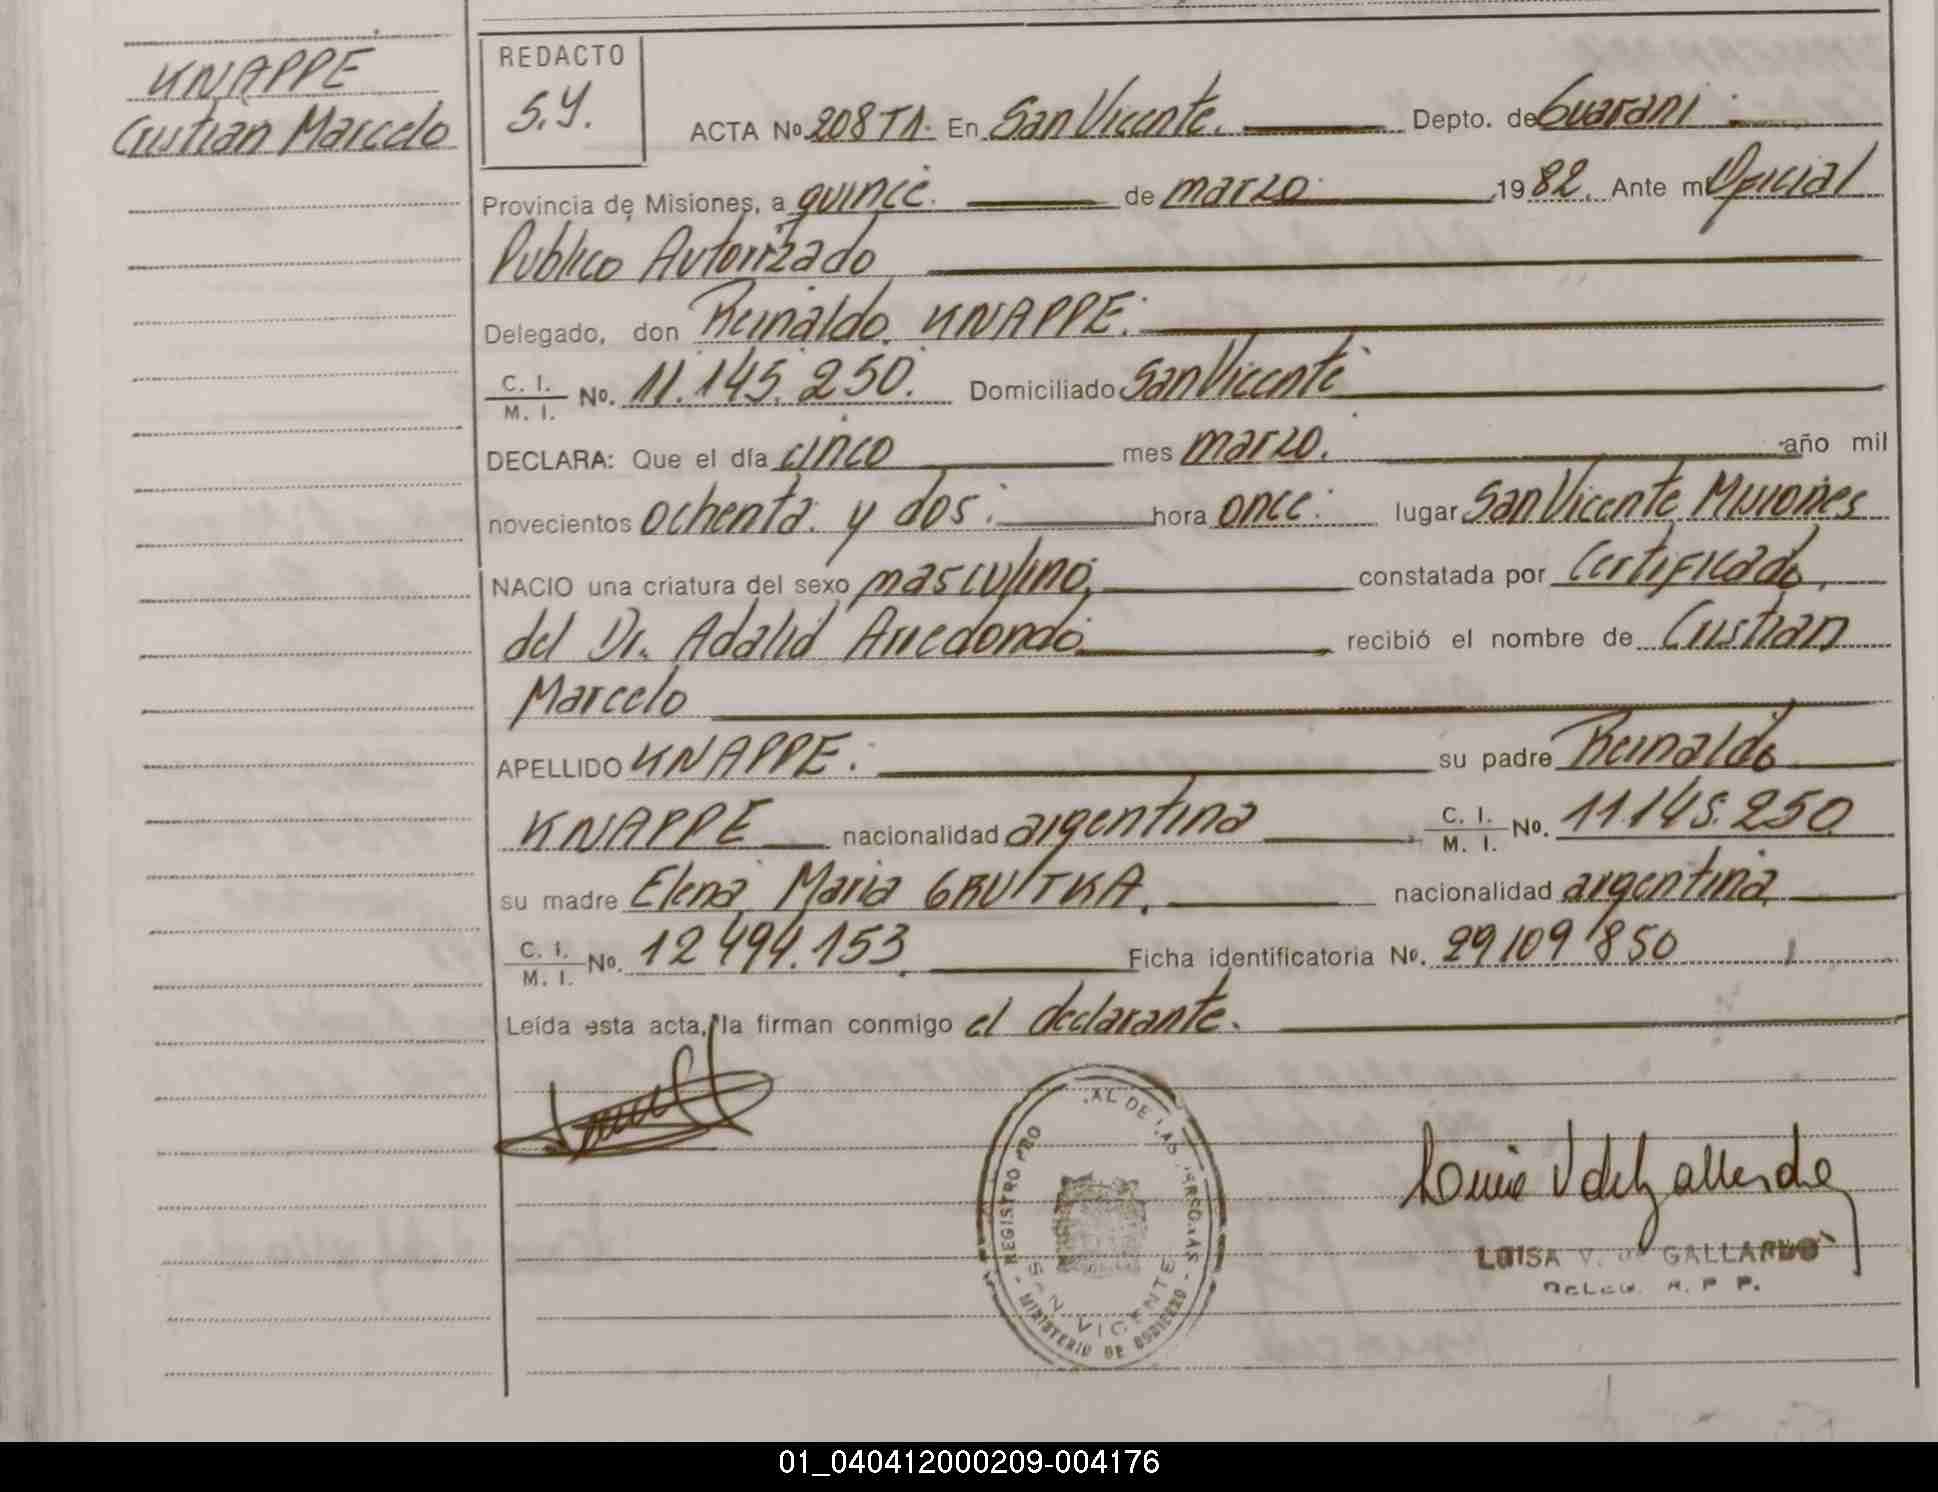 KNAPPE
Cristian Marcelo
REDACTO
S.Y.
ACTA No. 208 TA. En San Vicente. Depto. de Guarani
Provincia de Misiones, a quince. de marzo 1982. Ante mi Oficial
Publico Autorizado
Delegado, don Reinaldo. KNAPPE.
C. I. / M. I. No. 11.145.250. Domiciliado San Vicente
DECLARA: Que el día cinco mes marzo. año mil
novecientos ochenta y dos: hora once: lugar San Vicente Misiones
NACIO una criatura del sexo masculino, constatada por Certificado,
del Dr. Adalid Arredondo recibió el nombre de Cristian
Marcelo
APELLIDO KNAPPE: su padre Reinaldo
KNAPPE nacionalidad argentina C. I. / M. I. No. 11.145.250
su madre Elena Maria GRUITKA. nacionalidad argentina
C. I. / M. I. No. 12 494.153 Ficha identificatoria No. 29109850
Leída esta acta, la firman conmigo el declarante.
REGISTRO PRO AL DE LAS PERSONAS
SAN VICENTE
- MINISTERIO DE GOBIERNO -
Luisa V de Gallardo
LUISA V. DE GALLARDO
DELEG. R. P P.
01_040412000209-004176